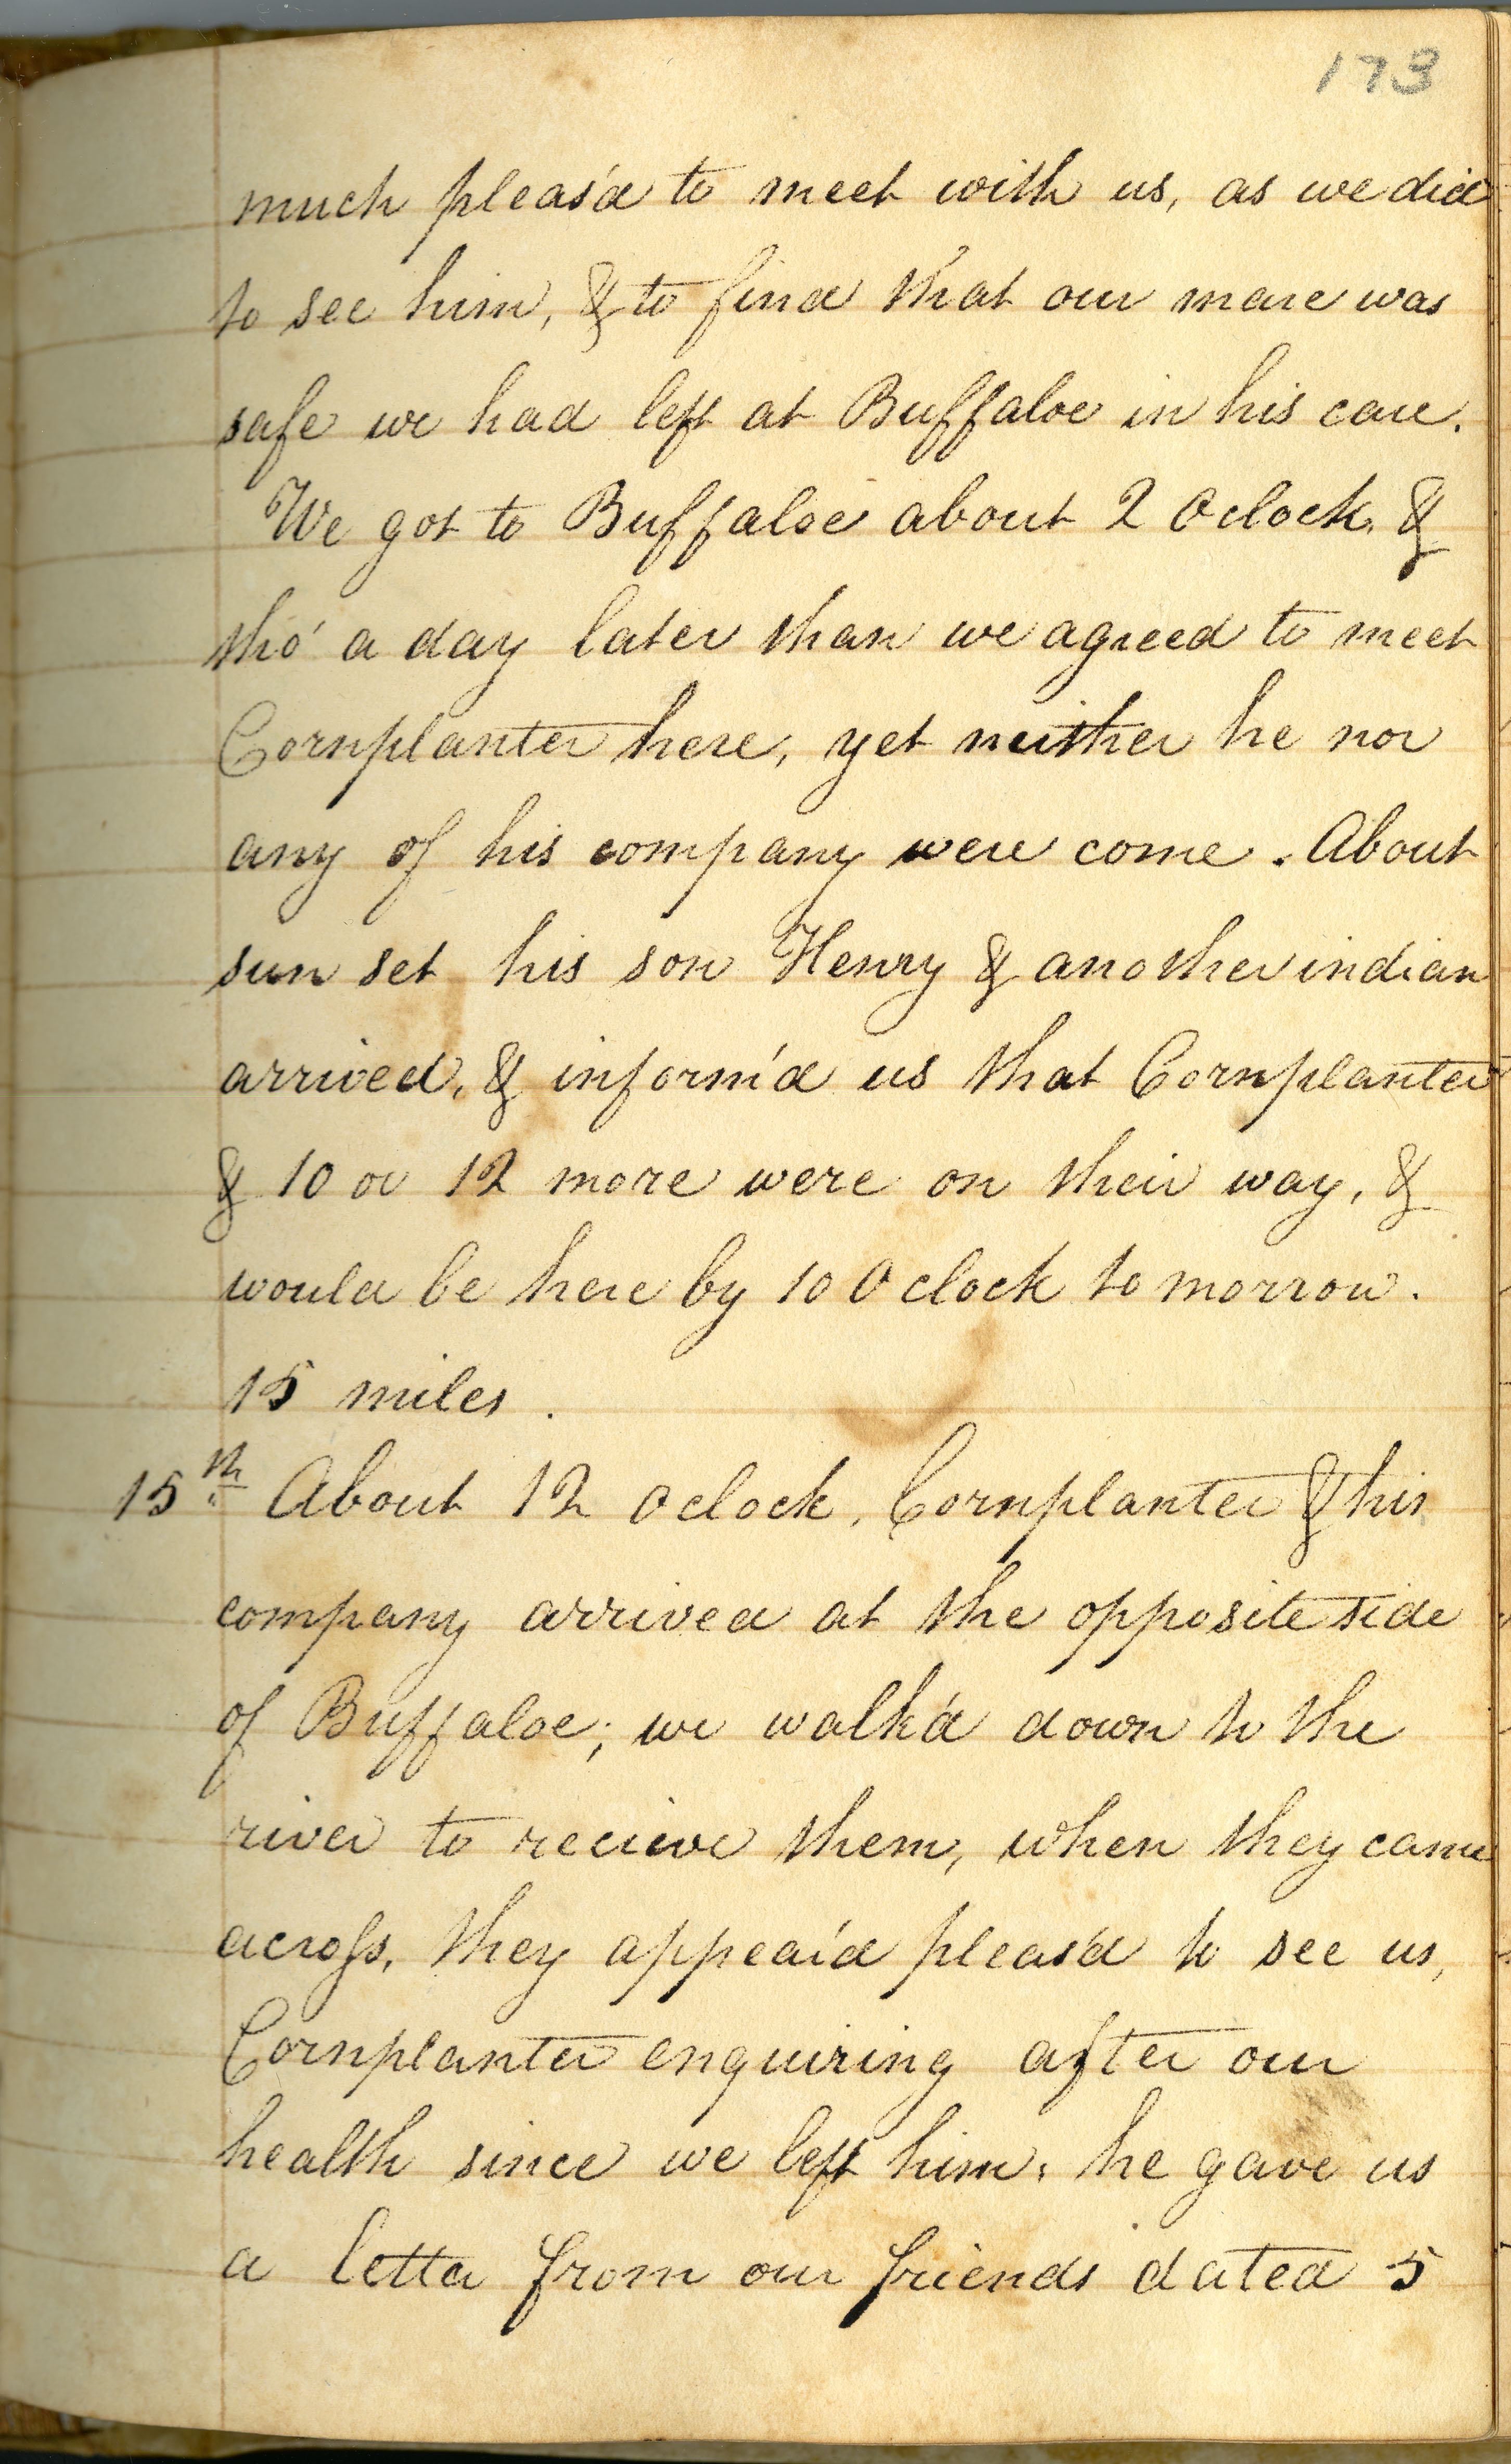 173
much pleas'd to meet with us, as we did
to see him, & to find that our mare was
safe we had left at Buffaloe in his care.
We got to Buffaloe about 2 Oclock, &
tho' a day later than we agreed to meet
Cornplanter here, yet neither he nor
any of his company were come. About
sun set his son Henry & another indian
arrived, & inform'd us that Cornplanter
& 10 or 12 more were on their way, &
would be here by 10 Oclock to morrow.
15 miles.
15th About 12 oclock, Cornplanter & his
company arrived at the opposite side
of Buffaloe; we walk'd down to the
river to recieve them, when they came
across, they appear'd pleas'd to see us,
Cornplanter enquiring after our
health since we left him, he gave us
a letter from our friends dated 5